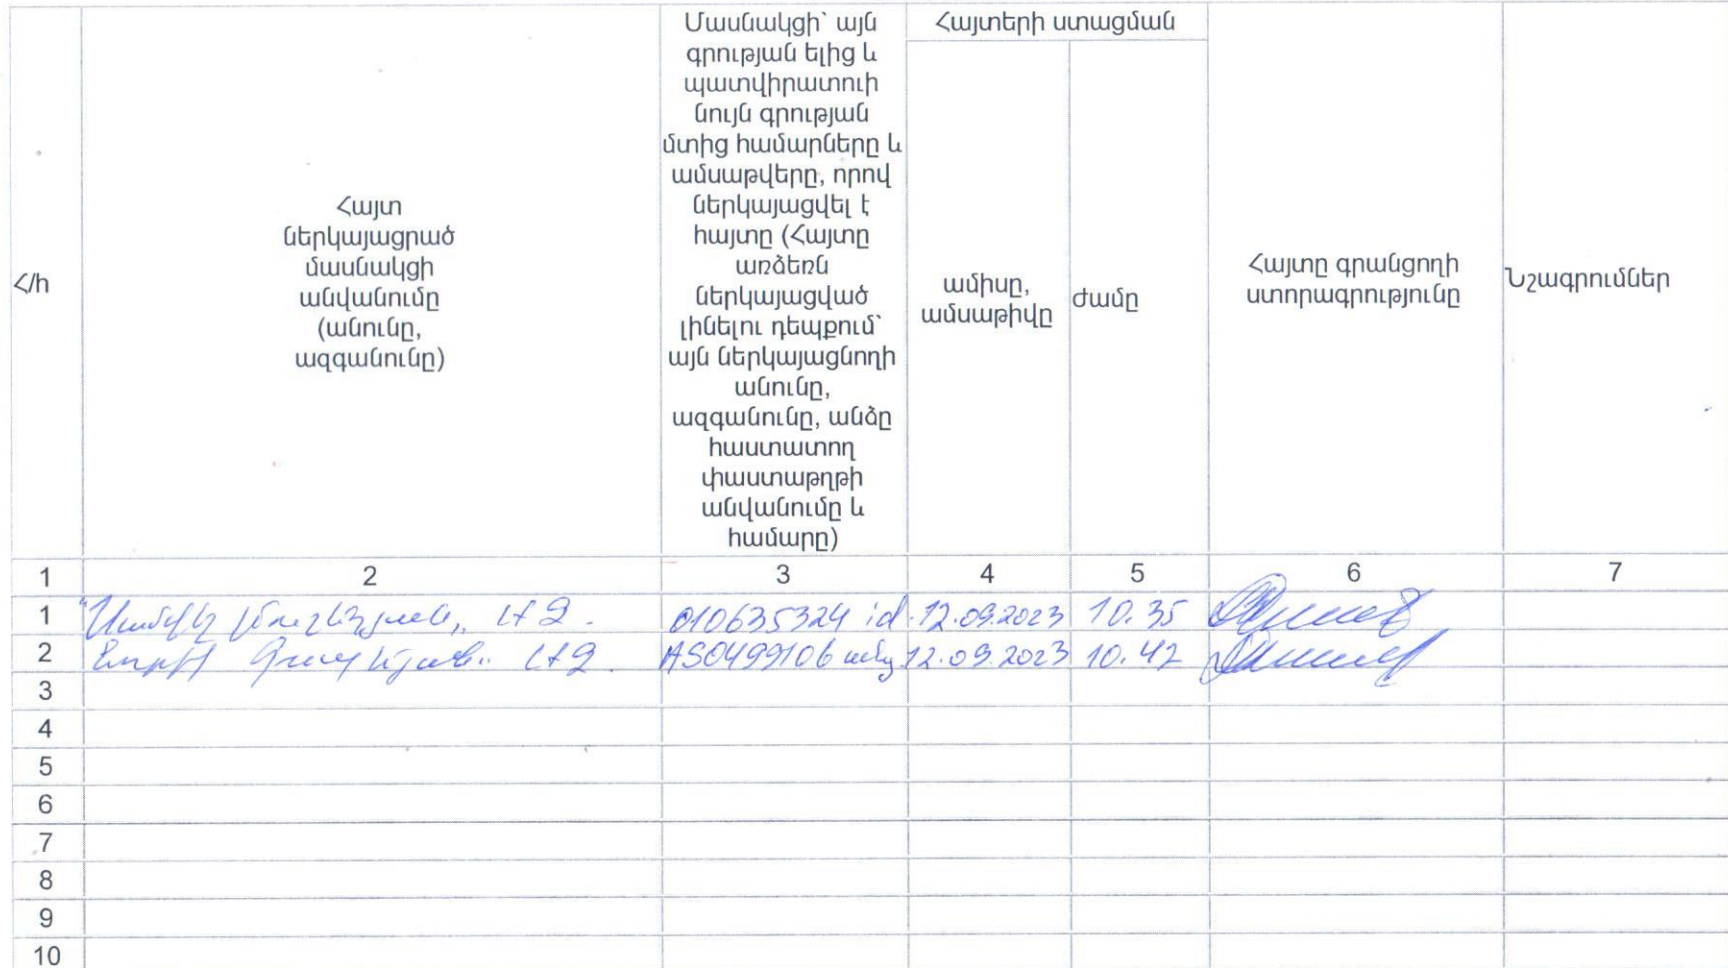 Հ/հ
Հայտ
ներկայացրած
մասնակցի
անվանումը
(անունը,
ազգանունը)
Մասնակցի` այն
գրության ելից և
պատվիրատուի
նույն գրության
մտից համարները և
ամսաթվերը, որով
ներկայացվել է
հայտը (Հայտը
առձեռն
ներկայացված
լինելու դեպքում`
այն ներկայացնողի
անունը,
ազգանունը, անձը
հաստատող
փաստաթղթի
անվանումը և
համարը)
Հայտերի ստացման
ամիսը,
ամսաթիվը
ժամը
Հայտը գրանցողի
ստորագրությունը
Նշագրումներ
1 2 3 4 5 6 7
1 010635324 id 12.09.2023 10.35
2 AS0499106 12.09.2023 10.42
3
4
5
6
7
8
9
10